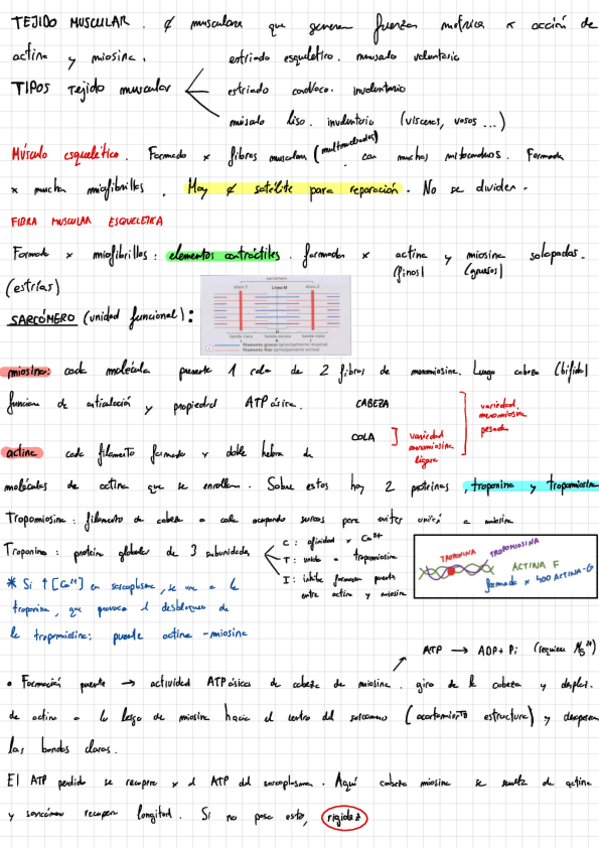 TEJIDO MUSCULAR. ¢ musculares que generan fuerza motriz x acción de
actina y miosina.
estriado esquelético. musculo voluntario
TIPOS Tejido muscular
estriado cardíaco. involuntario
músculo liso. involuntario (vísceras, vasos ...)
Músculo esquelético. Formado x fibras musculares (multinucleadas) con muchas mitocondrias. Formada
x mucha miofibrillas. Hay ¢ satélite para reparación. No se dividen.
FIBRA MUSCULAR ESQUELETICA
Formada x miofibrillas: elementos contráctiles. formada x actina y miosina solapadas.
(finos) (gruesos)
(estrías)
SARCÓMERO (unidad funcional):
sarcómero
disco Z Línea M disco Z
H
banda clara banda oscura banda clara
I A I
filamentos gruesos (principalmente miosina)
filamentos finos (principalmente actina)
miosina: cada molécula presenta 1 cola de 2 fibras de meromiosina. Luego cabeza (bífida)
funcion de articulación y propiedad ATPásica.
CABEZA
variedad meromiosina pesada
COLA
variedad meromiosina ligera
actina cada filamento formado x doble hebra de
moléculas de actina que se enrollan. Sobre estos hay 2 proteinas, troponina y tropomiosina
Tropomiosina: filamento de cabeza a cola ocupando surcos para evitar unión a miosina
Troponina: proteina globular de 3 subunidades
C: afinidad x Ca2+
T: unida a tropomiosina
I: inhibe formación puente entre actina y miosina
TROPONINA
TROPOMIOSINA
ACTINA F
formada x 400 ACTINA-G
* Si ↑[Ca2+] en sarcoplasma, se une a la
troponina, que provoca el desbloqueo de
la tropomiosina: puente actina-miosina
ATP → ADP + Pi (requiere Mg2+)
• Formación puente → actividad ATPásica de cabeza de miosina. giro de la cabeza y desplaz.
de actina a lo largo de miosina hacia el centro del sarcomero (acortamiento estructura) y desaparecen
las bandas claras.
El ATP perdido se recupera x el ATP del sarcoplasma. Aquí cabeza miosina se suelta de actina
y sarcómero recupera longitud. Si no pasa esto, rigidez